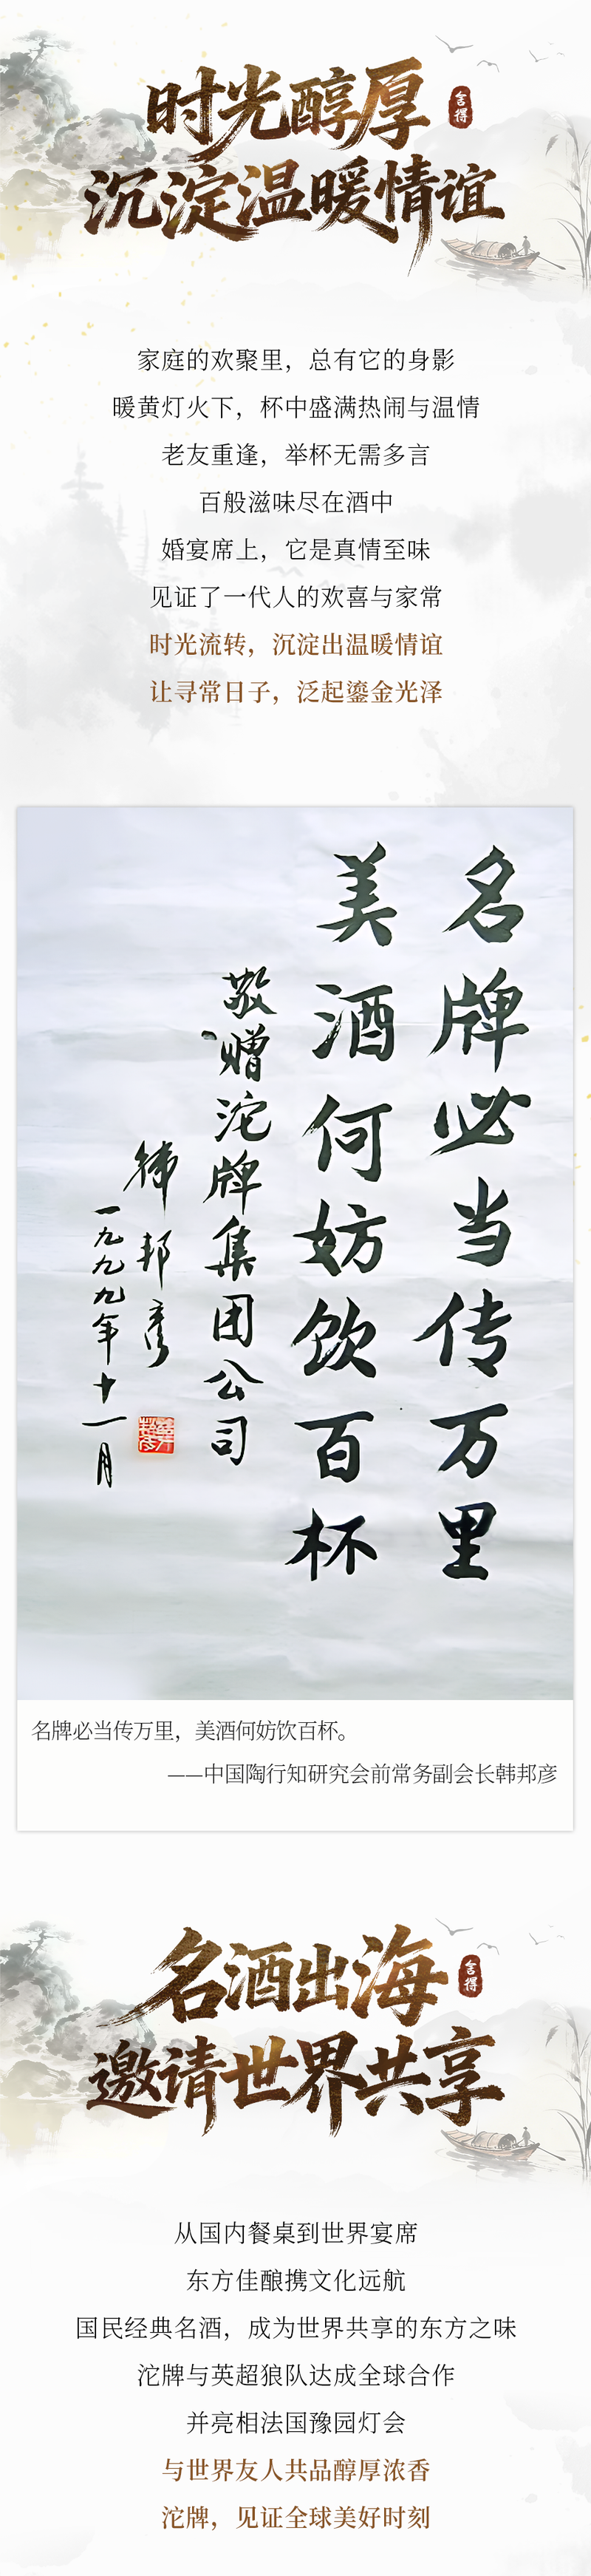 时光醇厚
舍得
沉淀温暖情谊
家庭的欢聚里，总有它的身影
暖黄灯火下，杯中盛满热闹与温情
老友重逢，举杯无需多言
百般滋味尽在酒中
婚宴席上，它是真情至味
见证了一代人的欢喜与家常
时光流转，沉淀出温暖情谊
让寻常日子，泛起鎏金光泽
名牌必当传万里
美酒何妨饮百杯
敬赠沱牌集团公司
韩邦彦
一九九九年十一月
名牌必当传万里，美酒何妨饮百杯。
——中国陶行知研究会前常务副会长韩邦彦
名酒出海
舍得
邀请世界共享
从国内餐桌到世界宴席
东方佳酿携文化远航
国民经典名酒，成为世界共享的东方之味
沱牌与英超狼队达成全球合作
并亮相法国豫园灯会
与世界友人共品醇厚浓香
沱牌，见证全球美好时刻